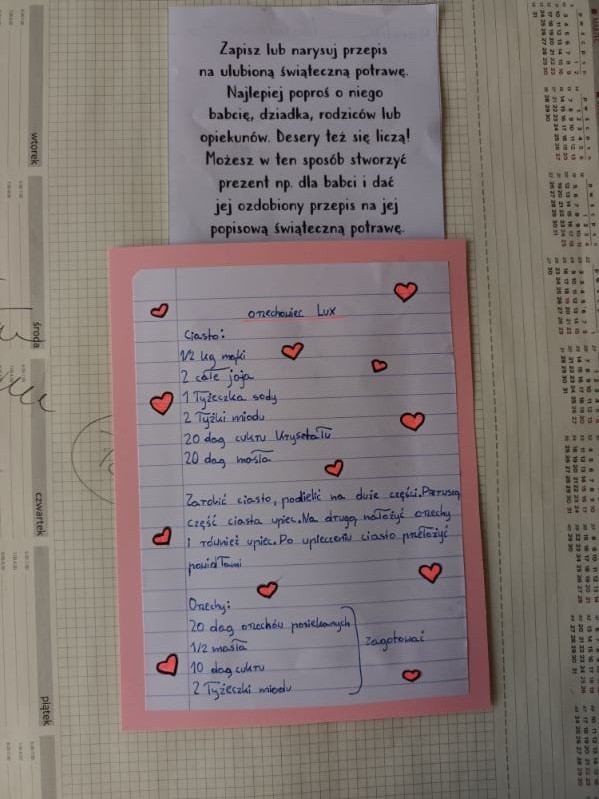 Zapisz lub narysuj przepis
na ulubioną świąteczną potrawę.
Najlepiej poproś o niego
babcię, dziadka, rodziców lub
opiekunów. Desery też się liczą!
Możesz w ten sposób stworzyć
prezent np. dla babci i dać
jej ozdobiony przepis na jej
popisową świąteczną potrawę.
orzechowiec Lux
Ciasto:
1/2 kg mąki
2 całe jaja
1 Łyżeczka sody
2 Łyżki miodu
20 dag cukru kryształu
20 dag masła
Zarobić ciasto, podielić na dwie części. Pierwszą
część ciasta upiec. Na drugą nałożyć orzechy
i również upiec. Po upieczeniu ciasto przełożyć
powidłami
Orzechy:
20 dag orzechów posiekanych
1/2 masła
10 dag cukru
2 Łyżeczki miodu
Zagotować
wtorek
środa
czwartek
piątek